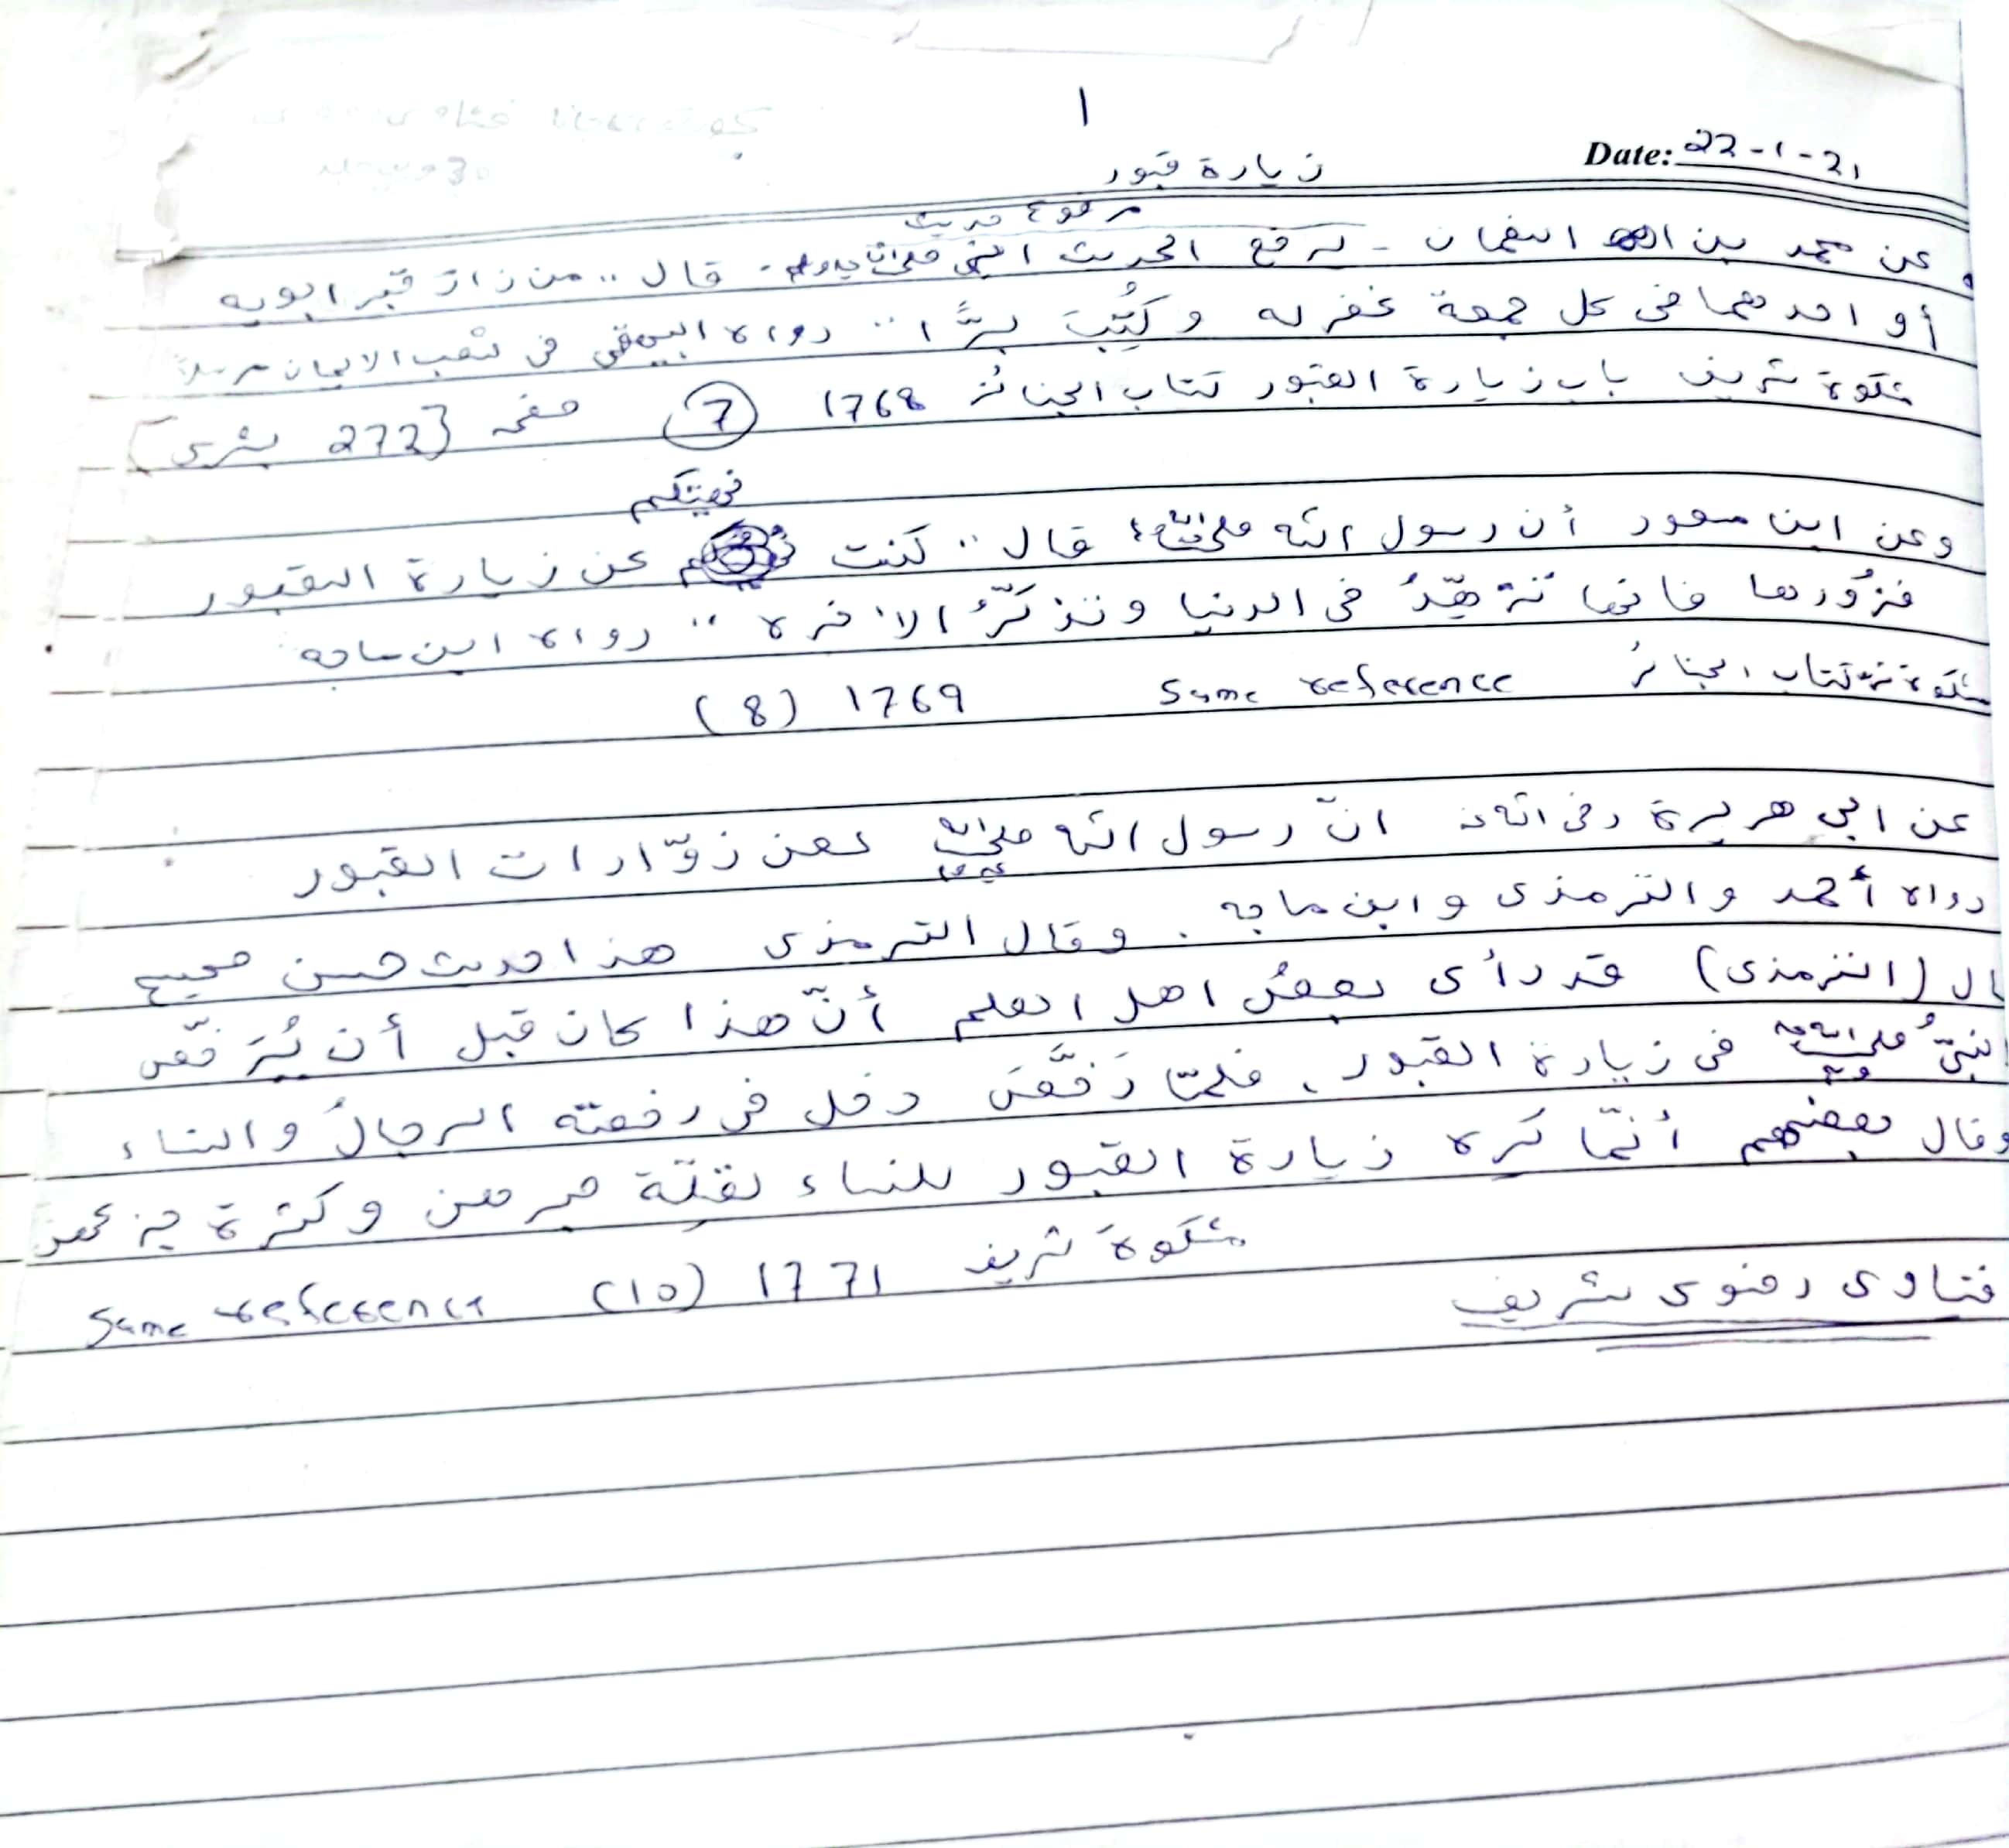 1
Date: 22-1-21
زيارة قبور
مرفوع حديث
عن محمد بن النعمان - يرفع الحديث النبي صلى الله عليه وسلم - قال "من زار قبر ابويه
أو احدهما في كل جمعة غفر له وكُتِبَ برًّا" رواه البيهقي في شعب الايمان مرسلاً
مشكوة شريف باب زيارة القبور كتاب الجنائز 1768 (7) صفحہ [272 بشرى]
نهيتكم
وعن ابن مسعود أن رسول الله صلى الله قال "كنت عن زيارة القبور
فزُوروها فانها تُزهِّدُ في الدنيا وتذكِّرُ الاخره" رواه ابن ماجه
مشكوة كتاب الجنائز Same reference 1769 (8)
عن ابي هريرة رضى الله انّ رسول الله صلى الله عليه وسلم لعن زوّارات القبور
رواه أحمد والترمذى وابن ماجه . وقال الترمذى هذا حديث حسن صحيح
ال (الترمذى) قد رأى بعضُ اهل العلم أنّ هذا كان قبل أن يُرَخّص
النبيُّ صلى الله عليه وسلم فى زيارة القبور، فلمّا رَخَّصَ دخل فى رخصته الرجالُ والنساء
وقال بعضهم أنّما كره زيارة القبور للنساء لقلّة صبرهن وكثرة جزعهن
مشكوة شريف 1771 (10) Same reference
فتاوى رضوى شريف